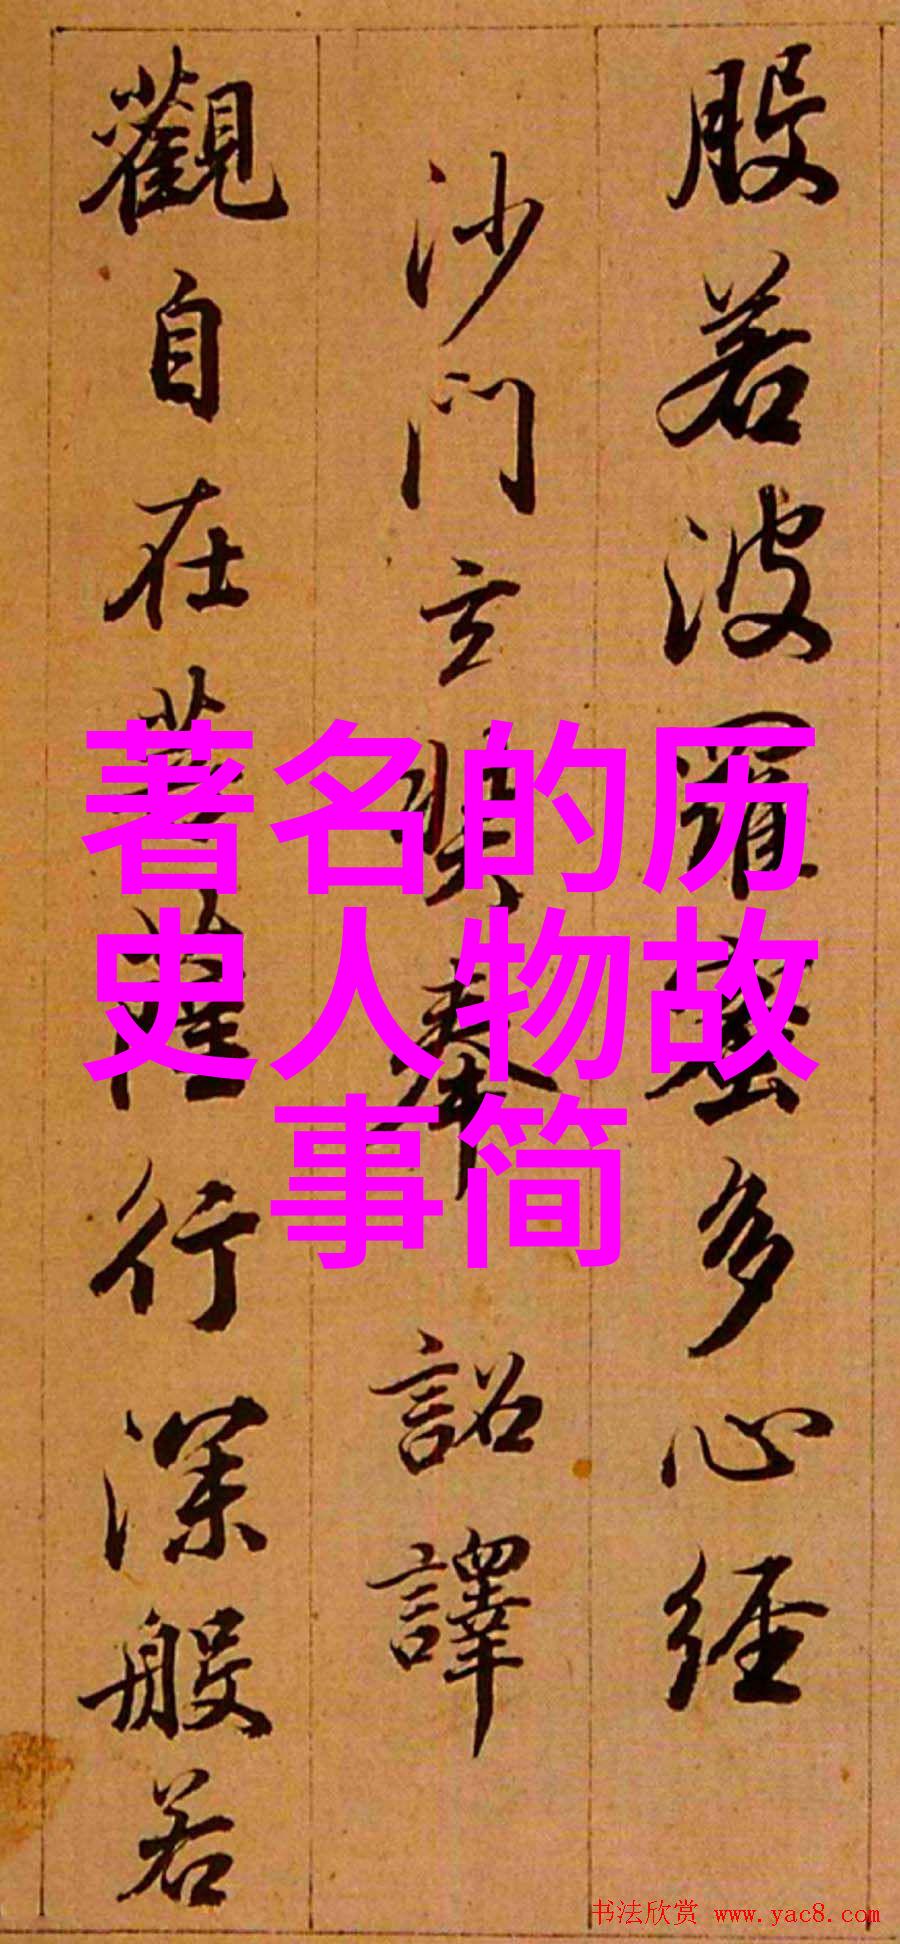 般若波羅蜜多心經
沙門玄奘奉詔譯
觀自在菩薩行深般若
著名的历
史人物故
事简
书法欣赏 www.yac8.com